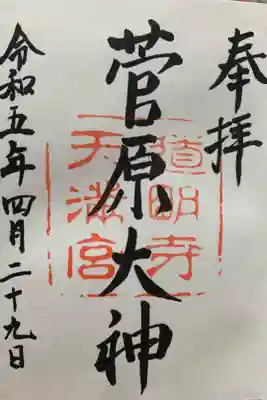 奉拝
菅原大神
道明寺
天満宮
令和五年四月二十九日